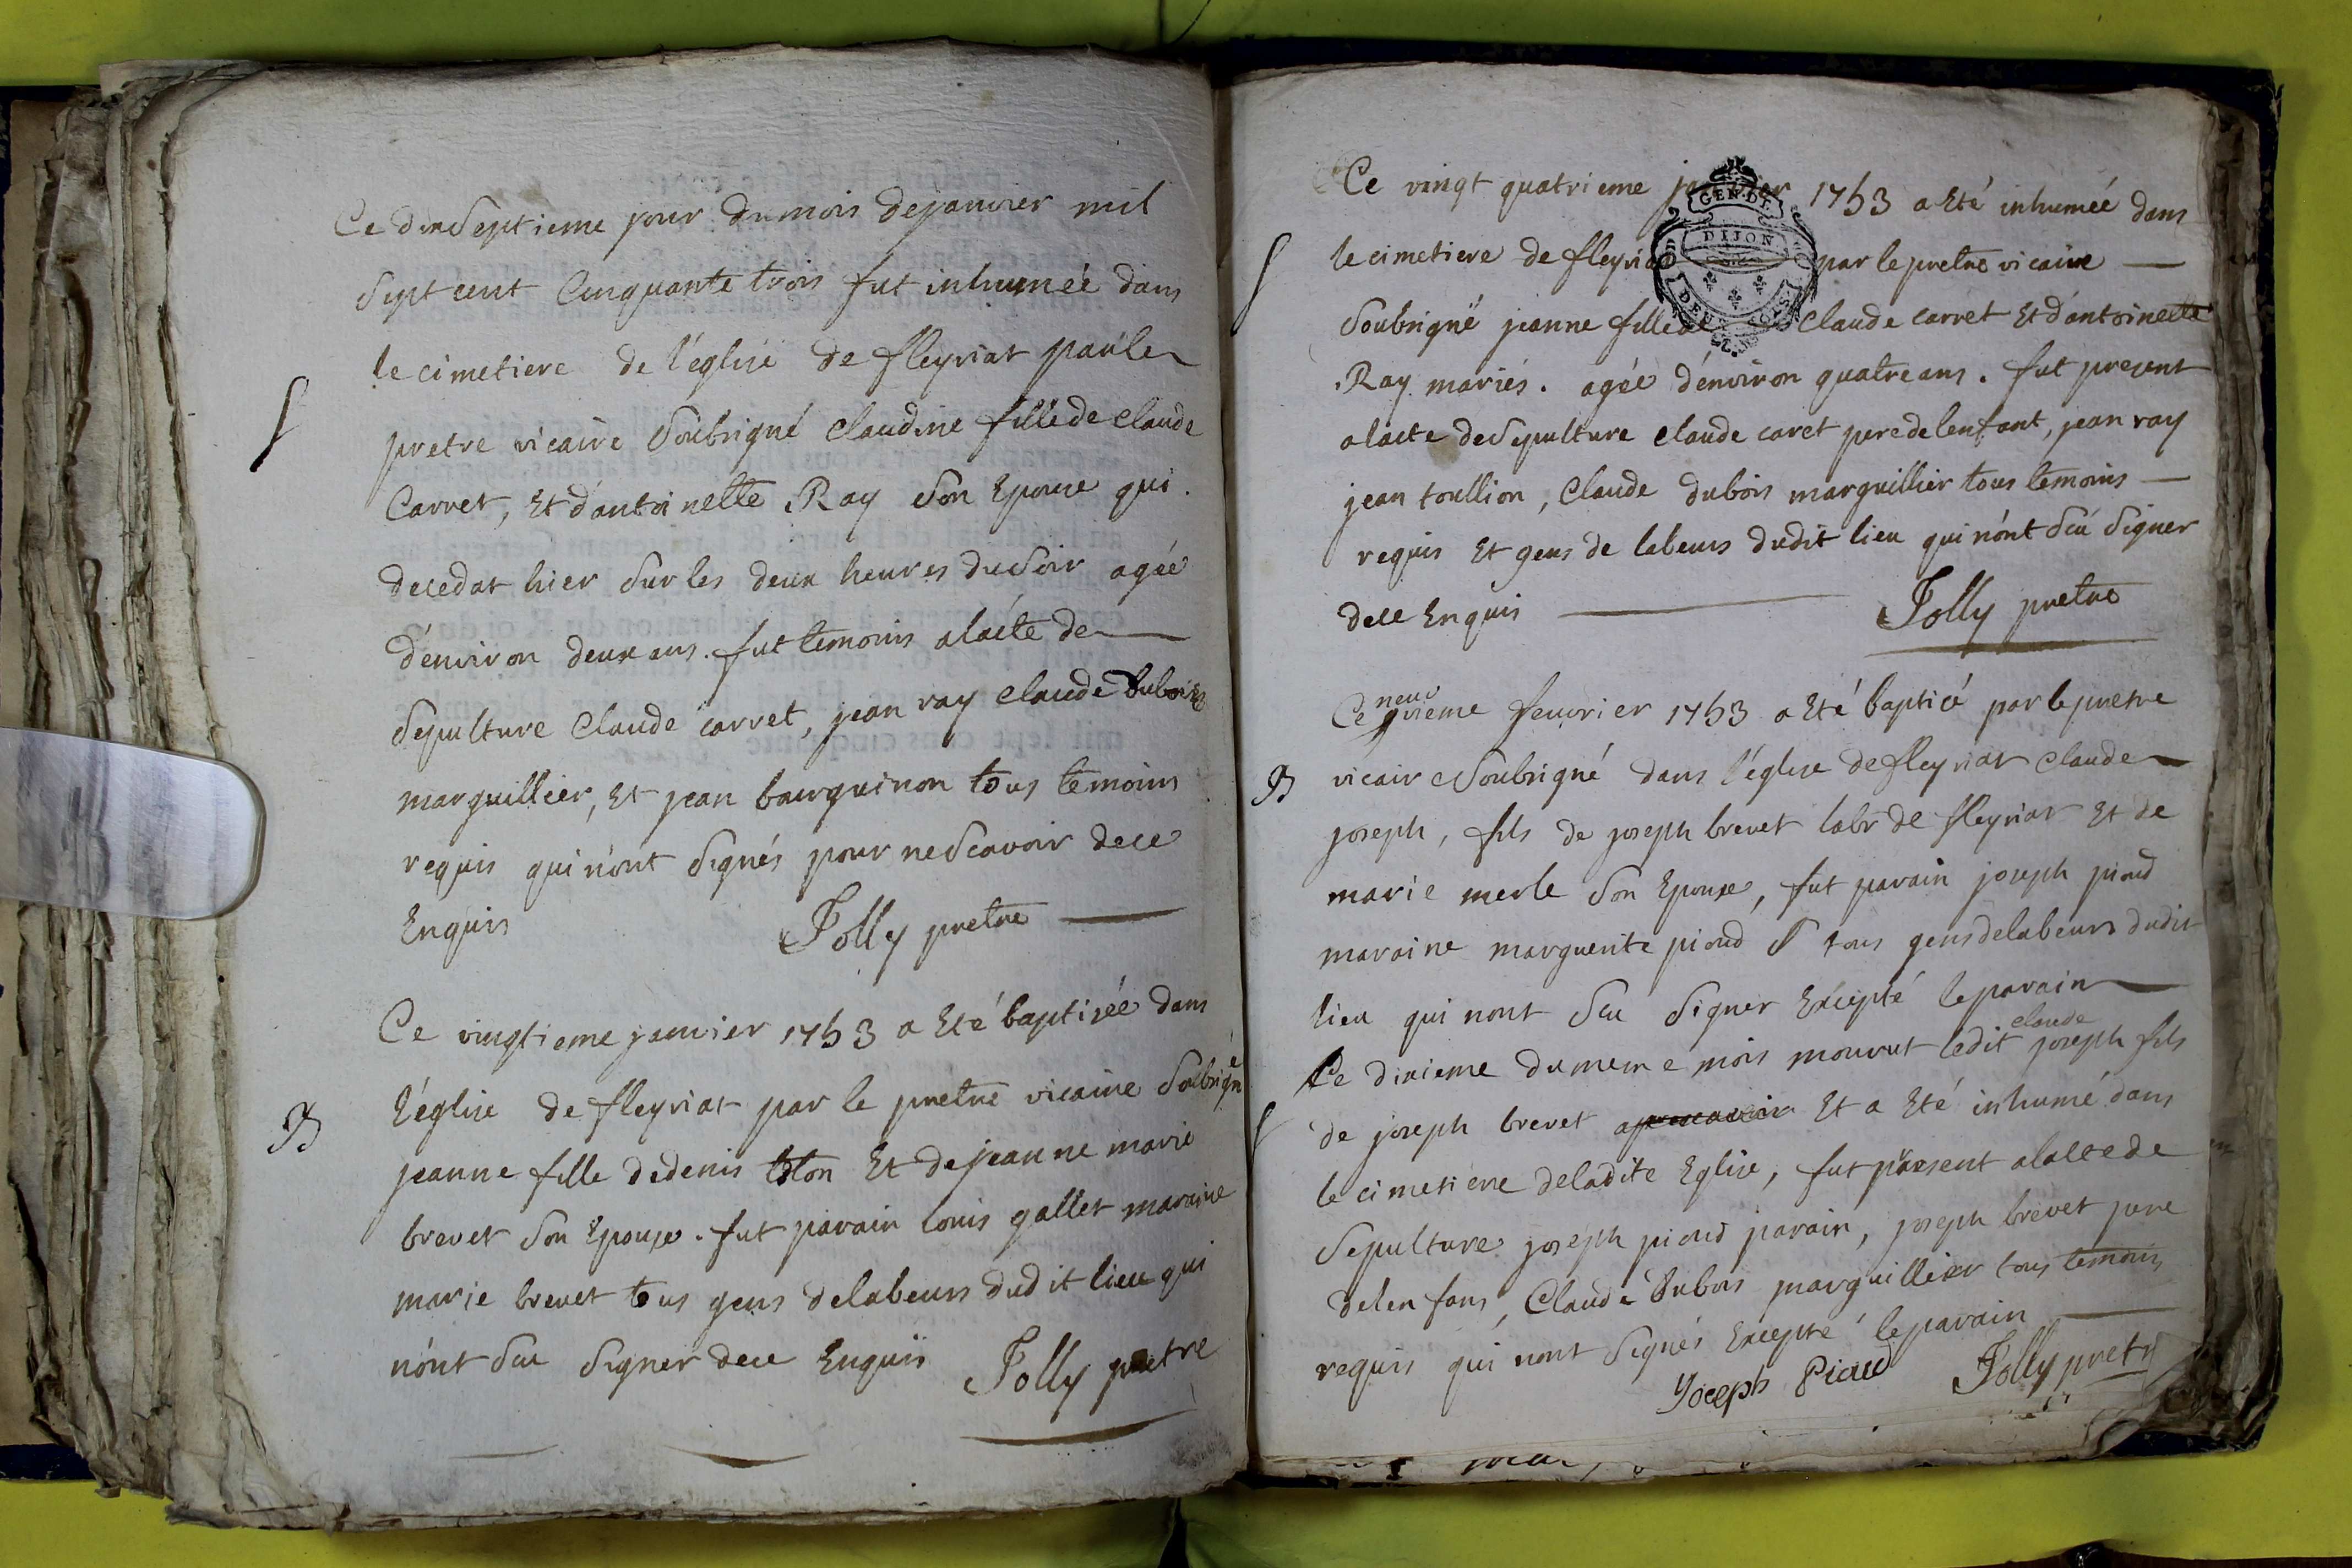 Ce dixseptieme jour du mois de janvier mil
sept cent Cinquante trois fut inhumeé dans
le cimetiere de l'églisé de fleyriat par le
S
pretre vicaire Soubsigné Claudine fille de Claude
Carret, Et d'antoinelle Ray Son Epouse qui
decedat hier Sur les deux heures du Soir agée
d'environ deux ans. fut temoins a lacte de
Sepulture Claude carret, jean ray Claude Dubois
marguillier, Et jean bourguinon tous temoins
requis qui n'ont Signés pour ne Scavoir de ce
Enquis Jolly pretre
Ce vingtieme janvier 1753 a Eté baptisée dans
B
l'église de fleyriat par le pretre vicaire Soubsigné
jeanne fille de denis Et de jeanne marie
brevet Son Epouse. fut parain louis gallet maraine
marie brevet tous gens de labeurs dudit lieu qui
n'ont Scu Signer de ce Enquis Jolly pretre
Ce vingt quatrieme janvier 1753 a Eté inhumeé dans
GEN. DE
DIJON
DEUX SOLS
S
le cimetiere de fleyriat par le pretre vicaire
Soubsigné jeanne fille de Claude carret Et d'antoinette
Ray mariés. agée d'environ quatre ans. fut present
a lacte de Sepulture Claude caret pere de lenfant, jean ray
jean toullion, Claude dubois marguillier tous temoins
requis Et gens de labeurs dudit lieu qui n'ont Scu Signer
de ce Enquis Jolly pretre
neuv
Ce ieme fevrier 1753 a Eté baptisé par le pretre
B
vicaire Soubsigné dans l'église de fleyriat Claude
joseph, fils de joseph brevet labr de fleyriat Et de
marie merle Son Epouse, fut parain joseph pioud
maraine marguerite pioud tous gens de labeurs dudit
lieu qui nont Scu Signer Excepté le parain
claude
Ce dixieme du meme mois mourut ledit joseph fils
S
de joseph brevet Et a Eté inhumé dans
le cimetiere de ladite Eglise, fut present a lacte de
Sepulture joseph pioud parain, joseph brevet pere
de lenfans, Claude Dubois marguillier tous temoins
requis qui nont Signés Excepté le parain
Joseph Pioud Jolly pretre